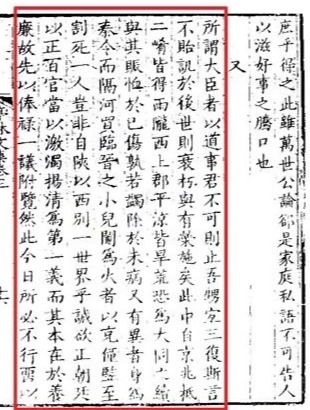 庶乎得之此雖萬世公論卻是家庭私語不可告人
以滋好事之騰口也
又
所謂大臣者以道事君不可則止吾甥宜三復斯言
不貽譏於後世則衰朽與有榮施矣此中自京兆抵
二崤皆得雨隴西上郡平涼皆旱荒恐為大同之續
與其賑恤於已傷孰若蠲除於未病又有異者身為
秦令而隔河買臨晉之小兒閹為火者以充僮豎至
割死一人豈非自陝以西別一世界乎誠欲正朝廷
以正百官當以激濁揚清為第一義而其本在於養
廉故先以俸祿一議附覽然此今日所必不行留以